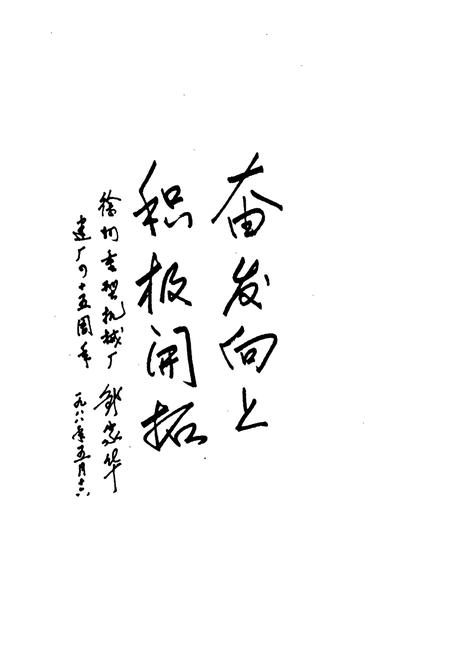 奋发向上
积极开拓
徐州重型机械厂
建厂四十五周年
邹家华
一九八八年五月十六